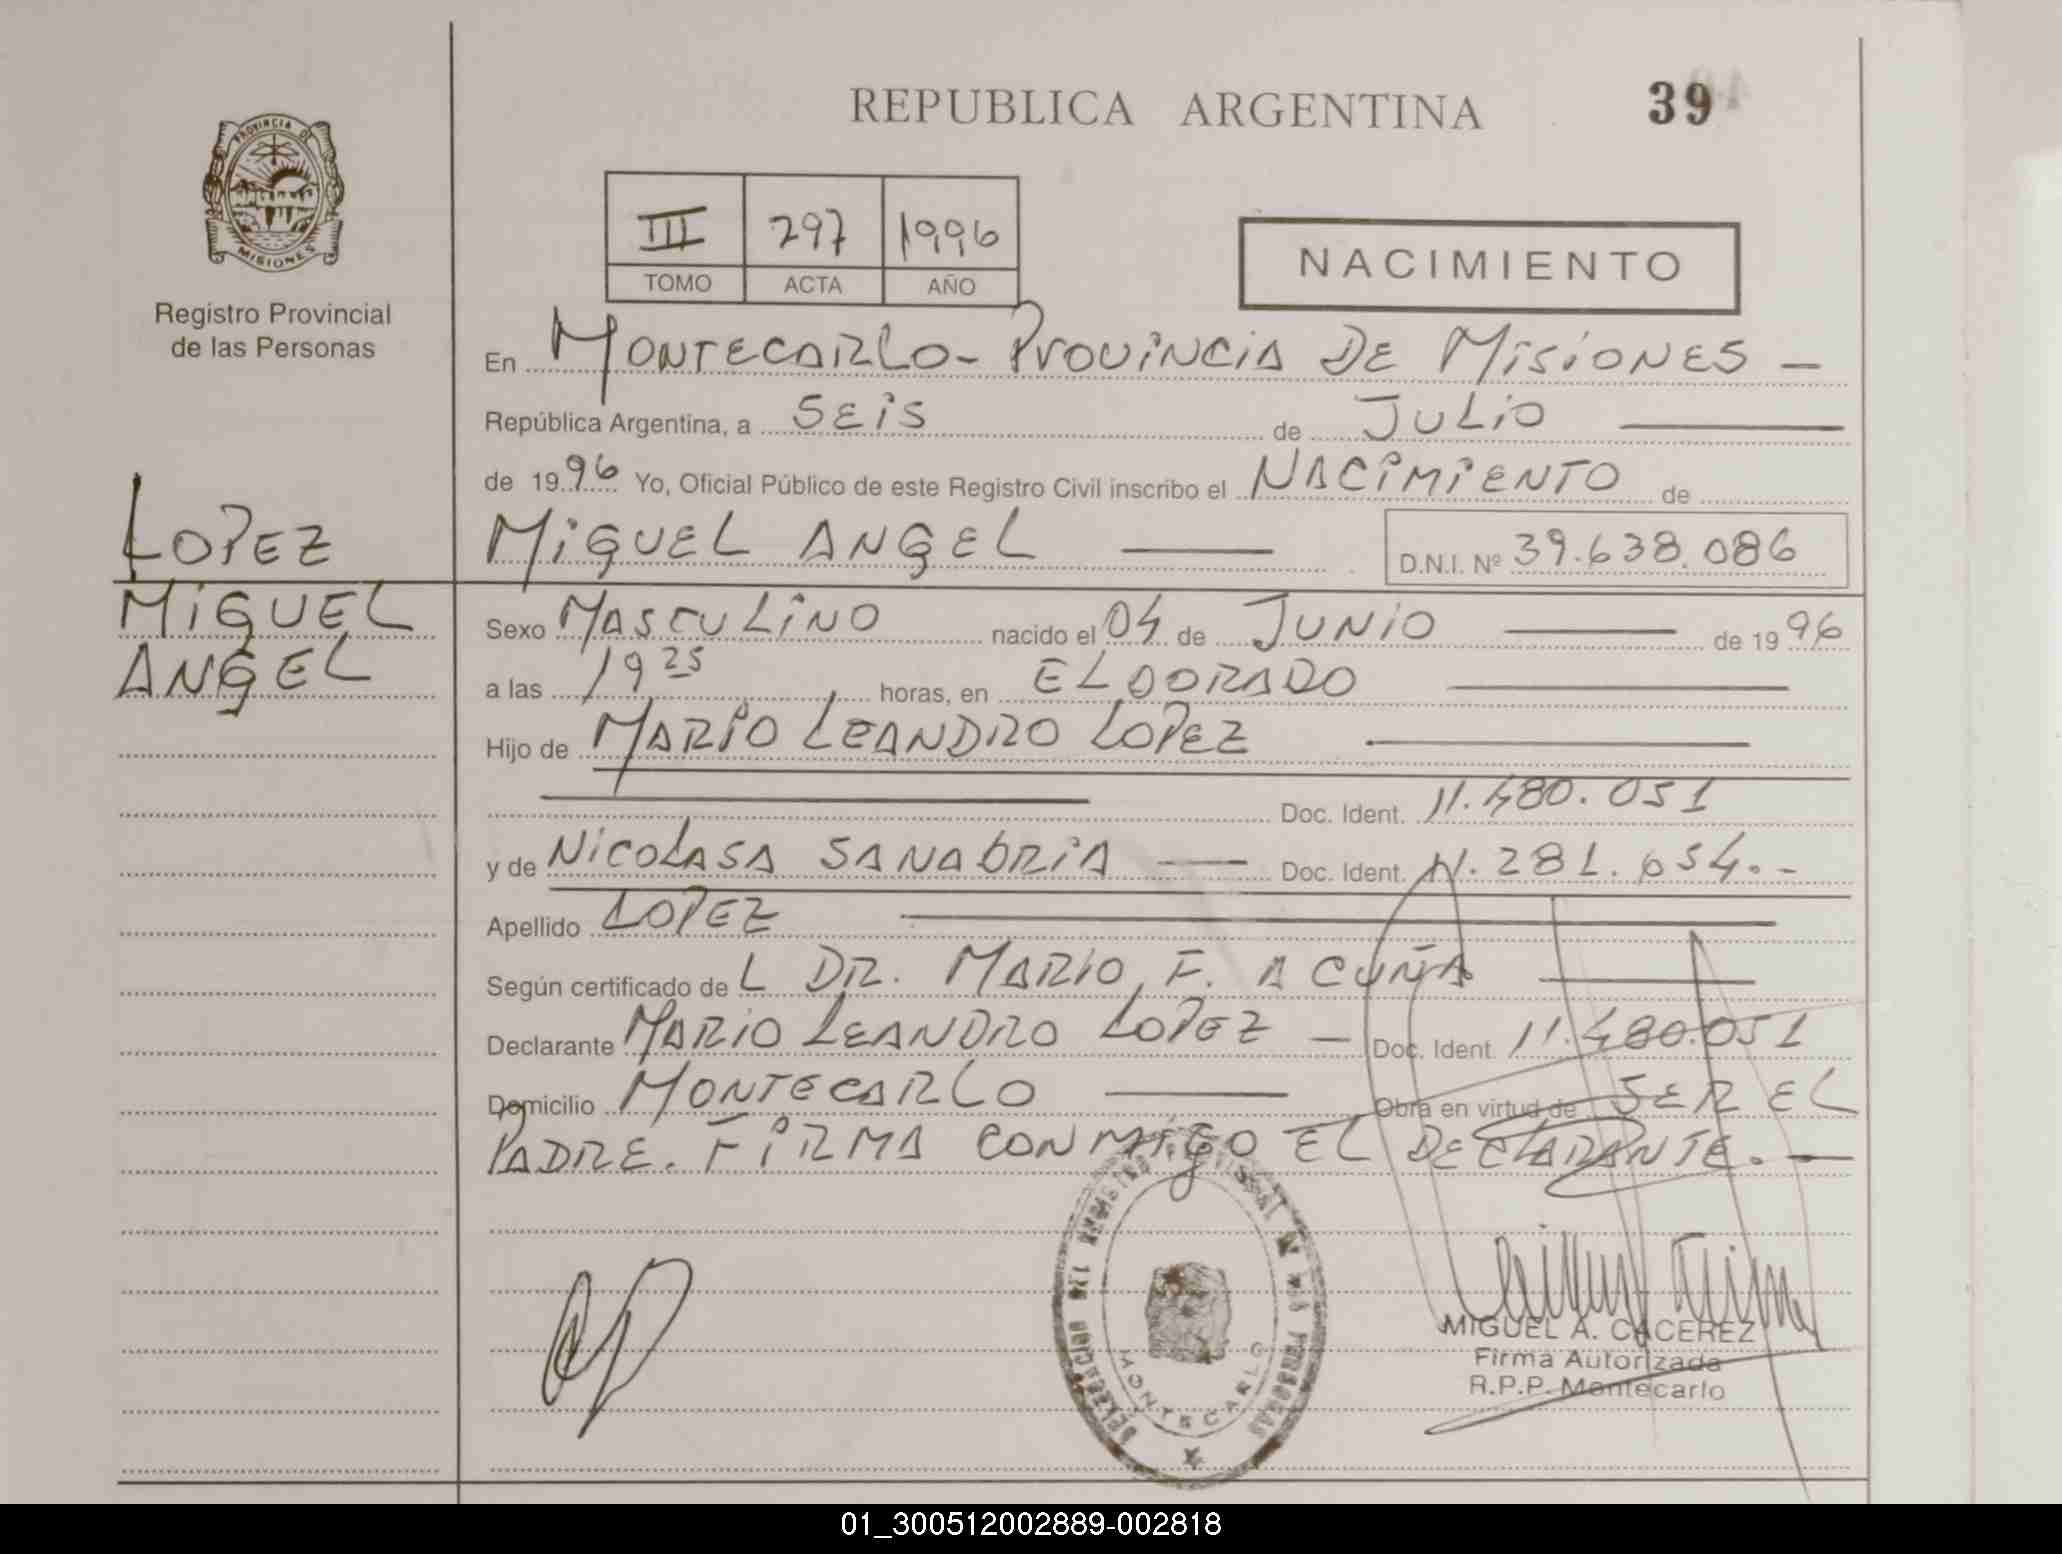 REPUBLICA ARGENTINA
39
PROVINCIA DE
MISIONES
Registro Provincial
de las Personas
III 297 1996
TOMO ACTA AÑO
NACIMIENTO
En MONTECARLO - PROVINCIA DE MISIONES -
República Argentina, a SEIS de JULIO
de 1996 Yo, Oficial Público de este Registro Civil inscribo el NACIMIENTO de
LOPEZ
MIGUEL
ANGEL
MIGUEL ANGEL D.N.I. Nº 39.638.086
Sexo MASCULINO nacido el 04 de JUNIO de 1996
a las 19 25 horas, en ELDORADO
Hijo de MARIO LEANDRO LOPEZ
Doc. Ident. 11.480.051
y de NICOLASA SANABRIA Doc. Ident. 11.281.654.-
Apellido LOPEZ
Según certificado de L DR. MARIO F. ACUÑA
Declarante MARIO LEANDRO LOPEZ - Doc. Ident. 11.480.051
Domicilio MONTECARLO Obra en virtud de SER EL
PADRE. FIRMA CONMIGO EL DECLARANTE. -
MONTECARLO
MIGUEL A. CACEREZ
Firma Autorizada
R.P.P. Montecarlo
01_300512002889-002818